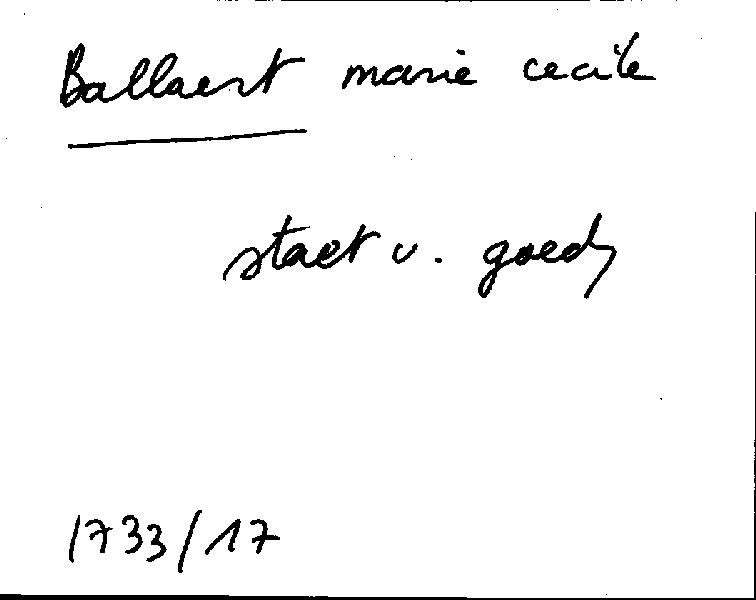 Ballaert marie cecile
staet v. goed
1733/17